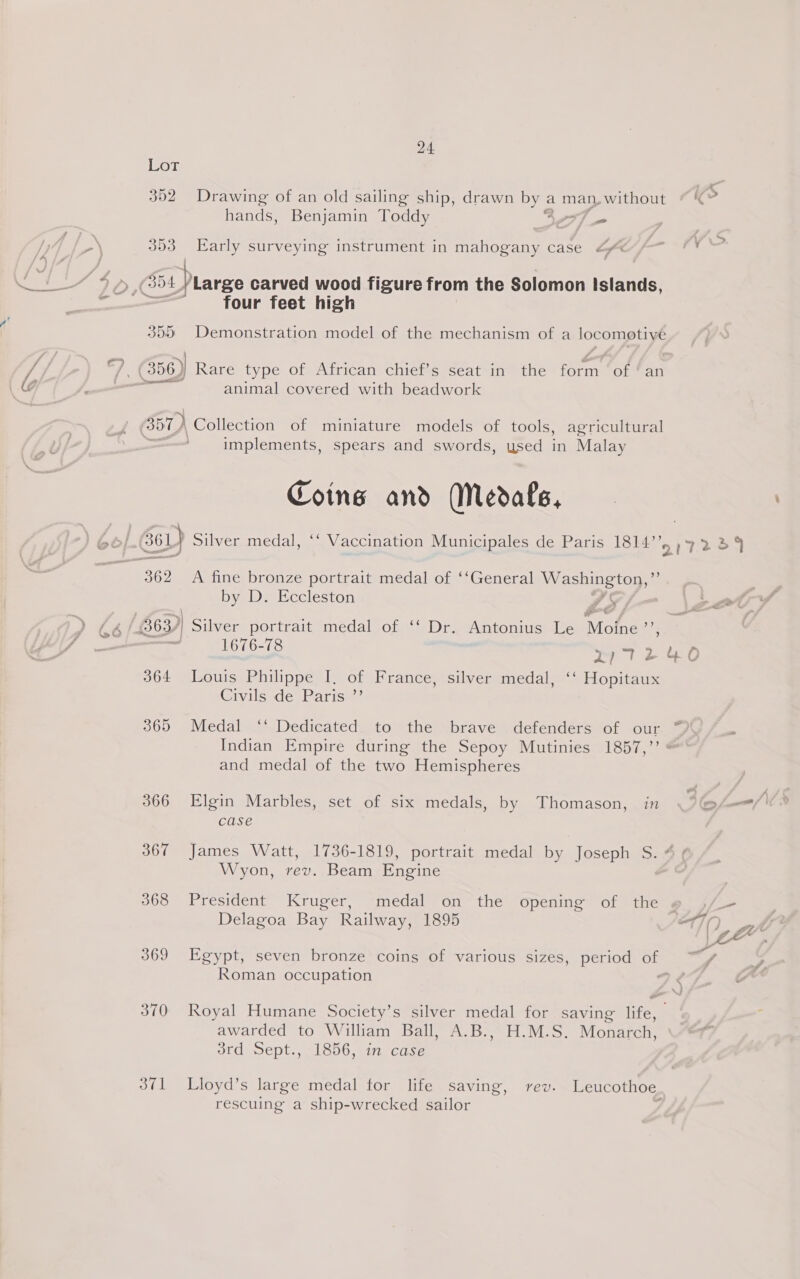 24
LOT
352 Drawing of an old sailing ship, drawn by a man without
hands, Benjamin Toddy
353 Early surveying instrument in mahogany case
354 Large carved wood figure from the Solomon Islands,
four feet high
355 Demonstration model of the mechanism of a locomotive
356 Rare type of African chief's seat in the form of an
animal covered with beadwork
357 Collection of miniature models of tools, agricultural
implements, spears and swords, used in Malay
Coins and Medals.
361 Silver medal, ‘‘ Vaccination Municipales de Paris 1814’’ 27239
362 A fine bronze portrait medal of ‘‘General Washington,’’
by D. Eccleston
363 Silver portrait medal of ‘‘ Dr. Antonius Le Moine ’’,
1676-78 27240
364 Louis Philippe I. of France, silver medal, ‘‘ Hopitaux
Civils de Paris ’’
365 Medal ‘‘ Dedicated to the brave defenders of our
Indian Empire during the Sepoy Mutinies 1857,’’
and medal of the two Hemispheres
366 Elgin Marbles, set of six medals, by Thomason, in
case
367 James Watt, 1736-1819, portrait medal by Joseph S.
Wyon, rev. Beam Engine
368 President Kruger, medal on the opening of the
Delagoa Bay Railway, 1895
369 Egypt, seven bronze coins of various sizes, period of
Roman occupation
370 Royal Humane Society's silver medal for saving life,
awarded to William Ball, A.B., H.M.S. Monarch,
3rd Sept., 1856, in case
371 Lloyd's large medal for life saving, rev. Leucothoe
rescuing a ship-wrecked sailor